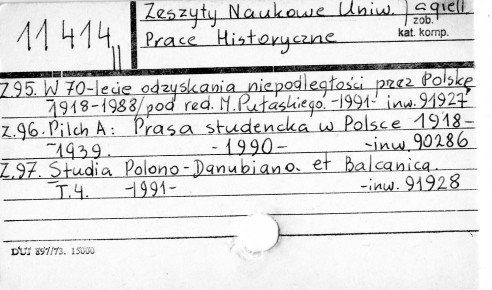 11 414 II
Zeszyty Naukowe Uniw. Jagiell.
zob.
kat. komp.
Prace Historyczne
Z.95. W 70-lecie odzyskania niepodległości przez Polskę
1918-1988/pod red. M. Pułaskiego. -1991- inw. 91927
Z.96. Pilch A: Prasa studencka w Polsce 1918-
-1939. -1990- -inw. 90286
Z.97. Studia Polono-Danubiana et Balcanica.
T.4. -1991- -inw. 91928
DUJ 897/73. 15000